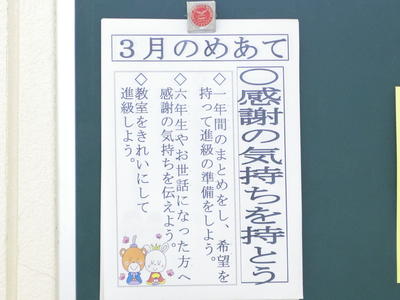 ３月のめあて
〇感謝の気持ちを持とう
◇一年間のまとめをし、希望を
持って進級の準備をしよう。
◇六年生やお世話になった方へ
感謝の気持ちを伝えよう。
◇教室をきれいにして
進級しよう。